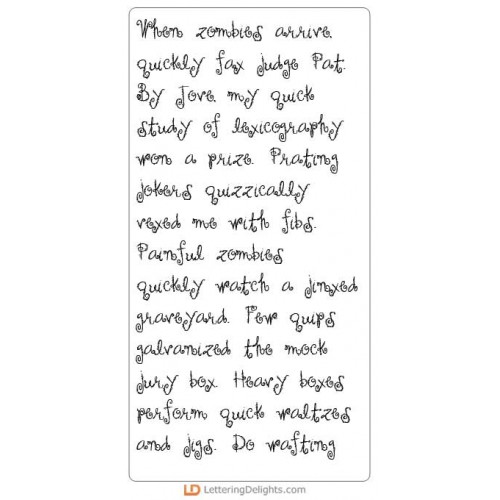 When zombies arrive,
quickly fax judge Pat.
By Jove, my quick
study of lexicography
won a prize. Prating
jokers quizzically
vexed me with fibs.
Painful zombies
quickly watch a jinxed
graveyard. Few quips
galvanized the mock
jury box. Heavy boxes
perform quick waltzes
and jigs. Do wafting
LD LetteringDelights.com